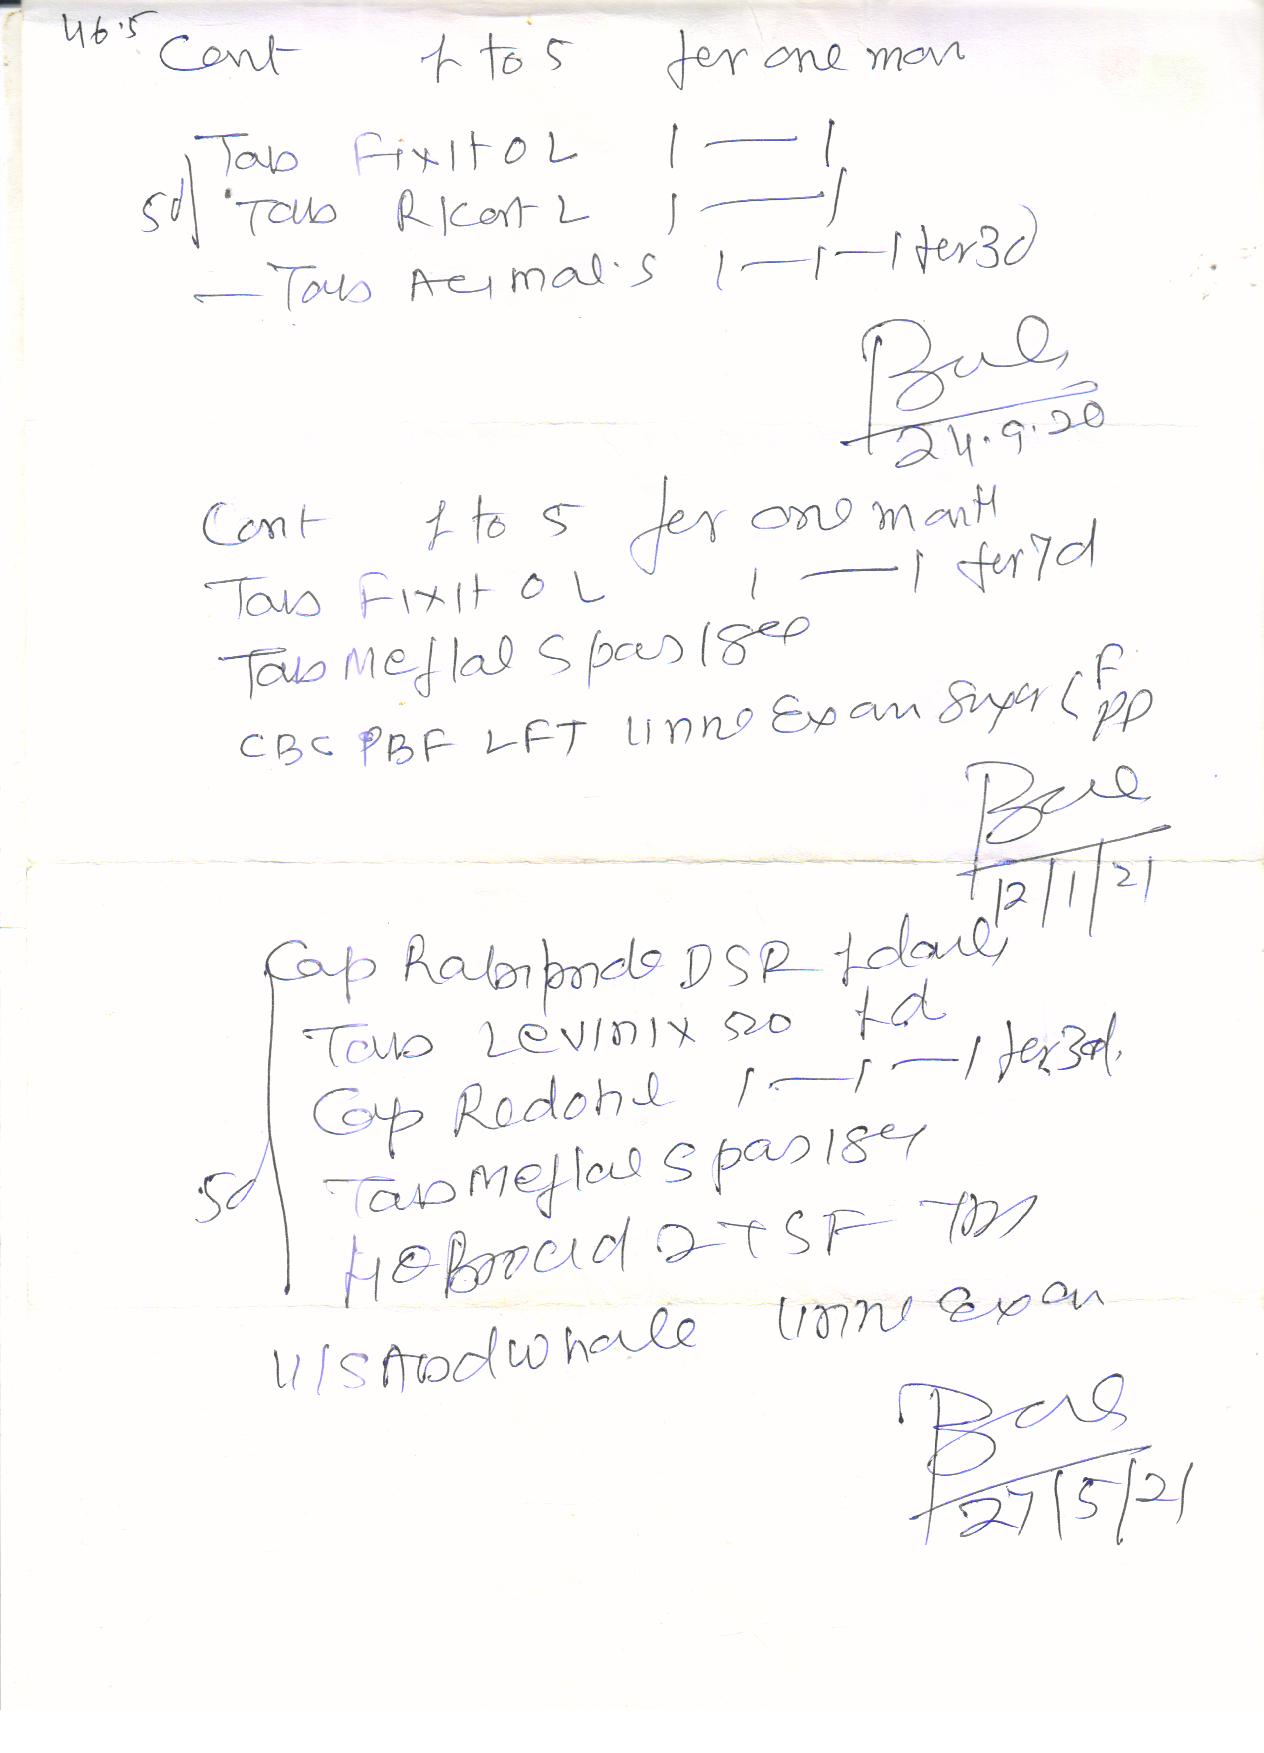 46.5
Cont 1 to 5 for one mon
Tab Fixit O L 1 — 1
5d Tab Rkont L 1 — 1
— Tab Acimol.S 1 — 1 — 1 for 3d
24.9.20
Cont 1 to 5 for one month
Tab Fixit O L 1 — 1 for 7d
Tab Meftal Spas 1 sos
CBC PBF LFT urine Exam Sugar F
PP
12/1/21
Cap Rabipride DSR 1 daily
Tab Levinix 500 1 d
Cap Redotil 1 — 1 — 1 for 3d.
5d Tab Meftal Spas 1 sos
2 TSF TDS
U/S Abd whole urine Exam
27/5/21